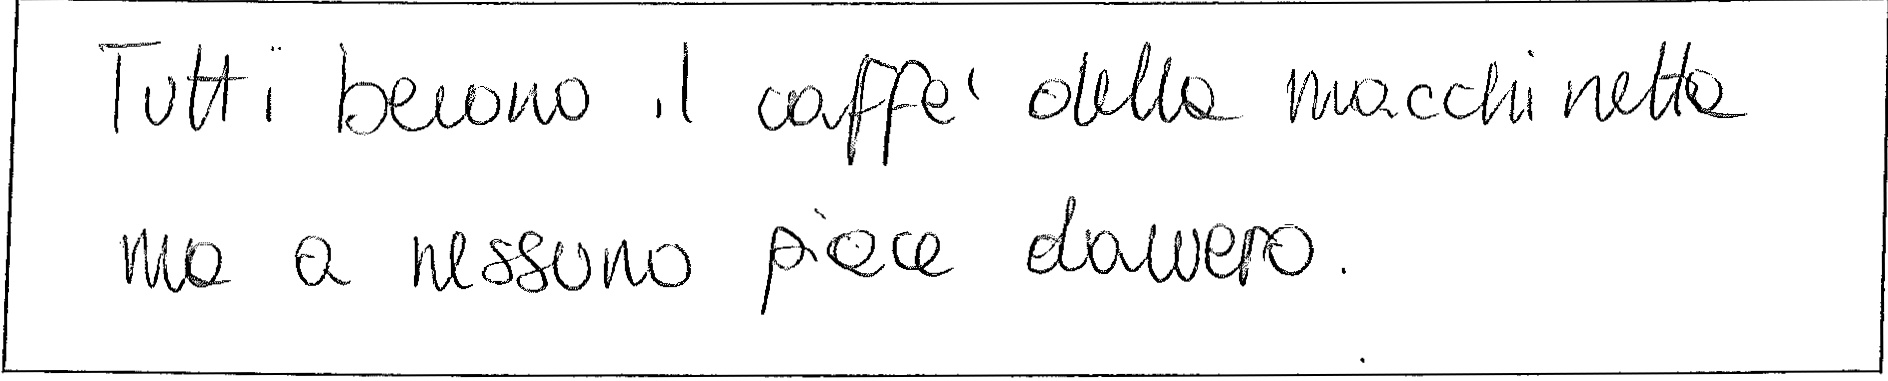 Tutti bevono il caffè della macchinetta
ma a nessuno piace davvero.